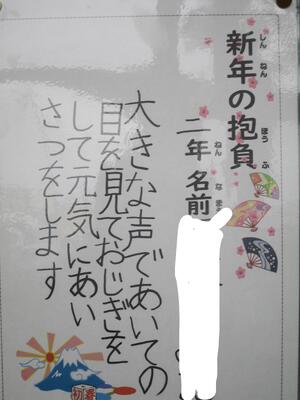 新年の抱負
しんねん
ほうふ
二年 名前
ねん
なまえ
大きな声であいての
目を見ておじぎを
して元気にあい
さつをします
初春